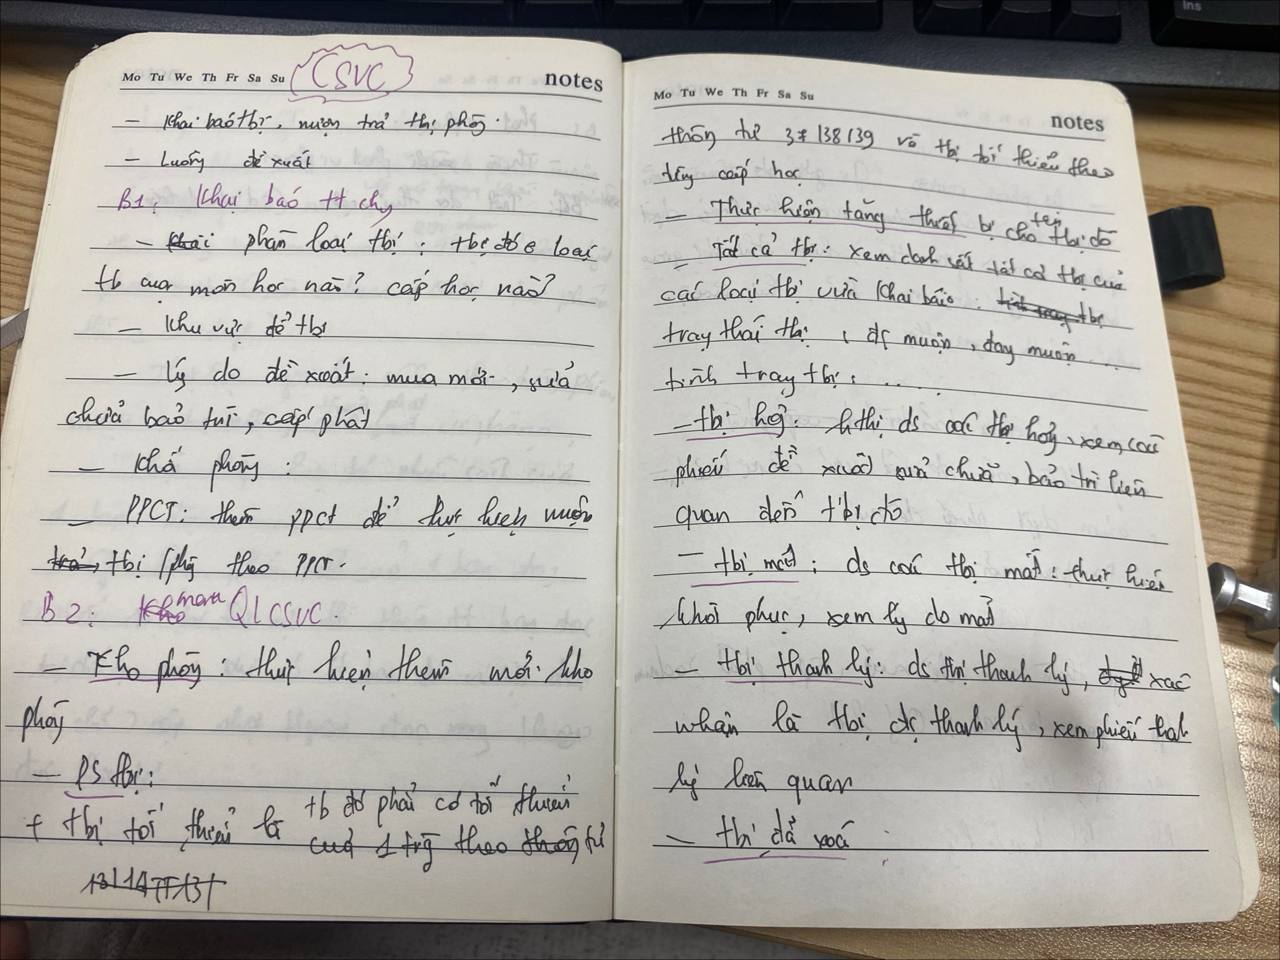 Mo Tu We Th Fr Sa Su
CSVC
notes
- Khai báo tbị, mượn trả tbị phòng.
- Luồng đề xuất
B1: Khai báo tt chg
- phân loại tbị: tbị đó loại
tb của môn học nào? cấp học nào?
- Khu vực để tbị
- Lý do đề xuất: mua mới, sửa
chữa bảo trì, cấp phát
- Khá phòng:
- PPCT: thêm PPCT để thực hiện mượn
tbị /phg theo PPCT.
B2: menu QLCSVC.
- Kho phòng: thực hiện thêm mới kho
phòng
- DS tbị:
+ tbị tối thiểu là tb đó phải có tối thiểu
của 1 trg theo thông tư
Mo Tu We Th Fr Sa Su
notes
thông tư 37/38/39 về tbị tối thiểu theo
từng cấp học
- Thực hiện tăng thiết bị cho tên tbị đó
- Tất cả tbị: xem danh sách tất cả tbị của
các loại tbị vừa khai báo: tbị
trạng thái tbị, đc mượn, đang mượn..
tình trạng tbị: ....
- tbị hỏng: hthị ds các tbị hỏng, xem các
phiếu đề xuất sửa chữa, bảo trì liên
quan đến tbị đó
- tbị mất: ds các tbị mất: thực hiện
khôi phục, xem lý do mất
- tbị thanh lý: ds tbị thanh lý, xác
nhận là tbị đc thanh lý, xem phiếu thanh
lý liên quan
- tbị đã xoá